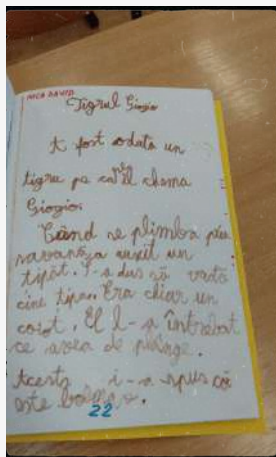 NICA DAVID
Tigrul Giogio
A fost odată un
tigru pe care îl chema
Giogio.
Când se plimba prin
savană a auzit un
tipăt. S-a dus să vadă
cine tipa. Era chiar un
El l-a întrebat
ce avea de plânge.
Acesta i-a spus că
este bolnav.
22